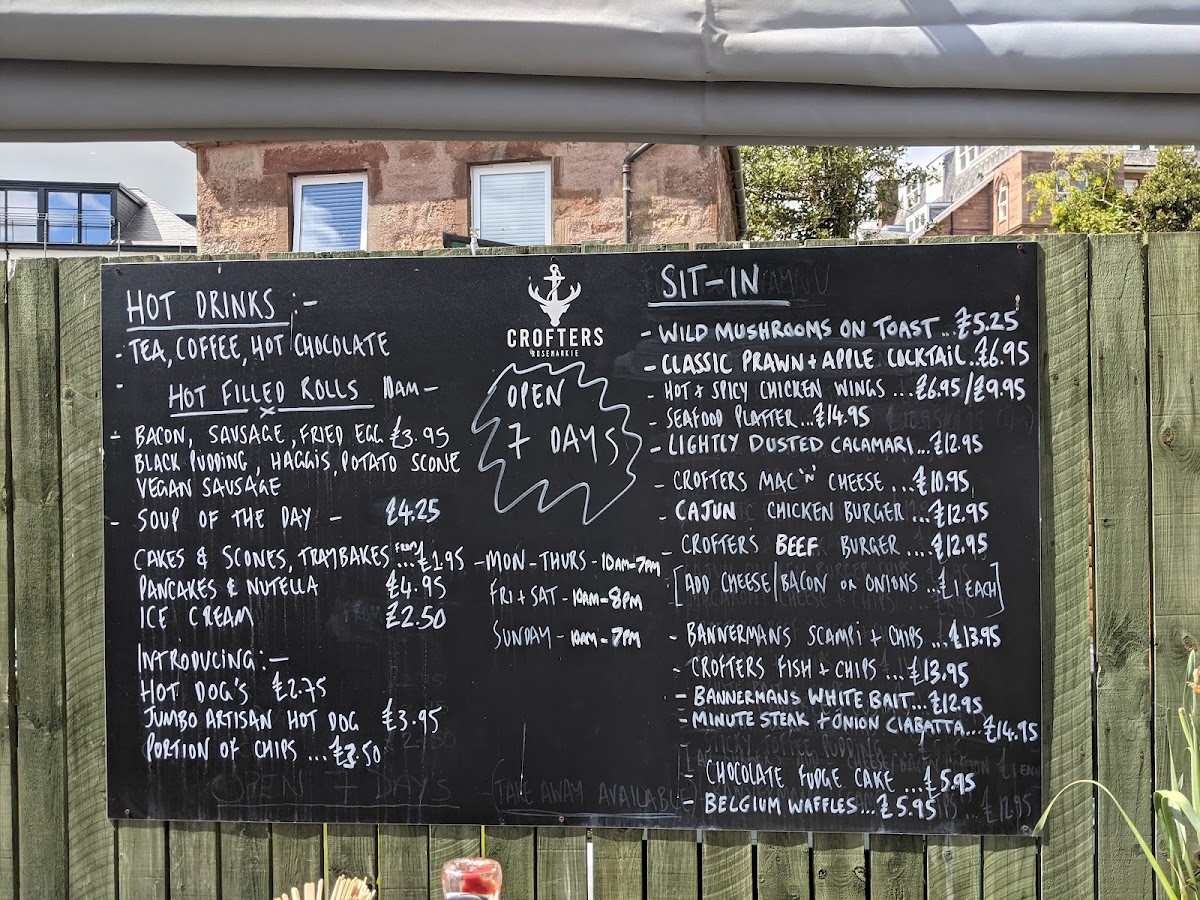 HOT DRINKS :-
- TEA, COFFEE, HOT CHOCOLATE
HOT FILLED ROLLS 10AM -
- BACON, SAUSAGE, FRIED EGG £3.95
BLACK PUDDING, HAGGIS, POTATO SCONE
VEGAN SAUSAGE
- SOUP OF THE DAY - £4.25
CAKES & SCONES, TRAYBAKES FROM...£1.95
PANCAKES & NUTELLA £4.95
ICE CREAM £2.50
INTRODUCING:-
HOT DOG'S £2.75
JUMBO ARTISAN HOT DOG £3.95
PORTION OF CHIPS ...£3.50
OPEN 7 DAYS
CROFTERS
ROSEMARKIE
OPEN
7 DAYS
- MON - THURS - 10AM - 7PM
FRI + SAT - 10AM - 8PM
SUNDAY - 10AM - 7PM
- TAKE AWAY AVAILABLE
SIT-IN
- WILD MUSHROOMS ON TOAST...£5.25
- CLASSIC PRAWN + APPLE COCKTAIL..£6.95
- HOT & SPICY CHICKEN WINGS ...£6.95/£9.95
- SEAFOOD PLATTER...£14.95
- LIGHTLY DUSTED CALAMARI...£12.95
- CROFTERS MAC 'N' CHEESE ...£10.95
- CAJUN CHICKEN BURGER ...£12.95
- CROFTERS BEEF BURGER ....£12.95
[ADD CHEESE/BACON OR ONIONS ...£1 EACH]
- BANNERMANS SCAMPI + CHIPS ...£13.95
- CROFTERS FISH + CHIPS ...£13.95
- BANNERMANS WHITE BAIT...£12.95
- MINUTE STEAK + ONION CIABATTA...£14.95
- CHOCOLATE FUDGE CAKE ...£5.95
- BELGIUM WAFFLES...£5.95